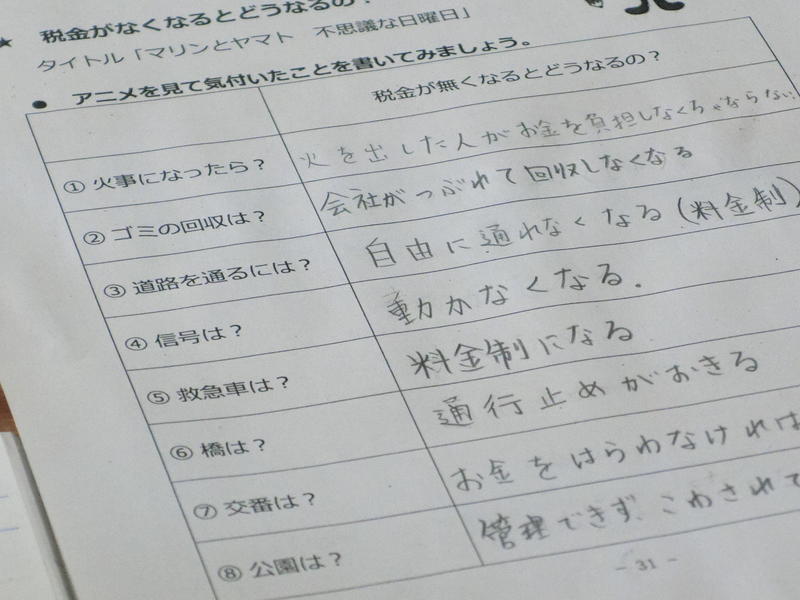 税金がなくなるとどうなるの?
タイトル「マリンとヤマト 不思議な日曜日」
● アニメを見て気付いたことを書いてみましょう。
税金が無くなるとどうなるの?
① 火事になったら?
火を出した人がお金を負担しなくちゃならない
② ゴミの回収は?
会社がつぶれて回収しなくなる
③ 道路を通るには?
自由に通れなくなる(料金制)
④ 信号は?
動かなくなる.
⑤ 救急車は?
料金制になる
⑥ 橋は?
通行止めがおきる
⑦ 交番は?
お金をはらわなければ
⑧ 公園は?
管理できず こわされて
- 31 -